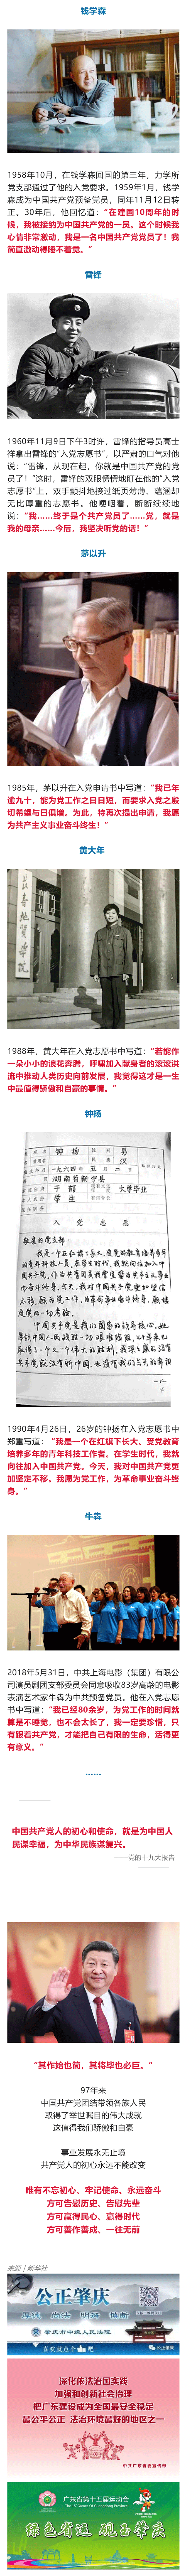 钱学森
1958年10月，在钱学森回国的第三年，力学所
党支部通过了他的入党要求。1959年1月，钱学
森成为中国共产党预备党员，同年11月12日转
正。30年后，他回忆道：“在建国10周年的时
候，我被接纳为中国共产党的一员。这个时候我
心情非常激动，我是一名中国共产党党员了！我
简直激动得睡不着觉。”
雷锋
1960年11月9日下午3时许，雷锋的指导员高士
祥拿出雷锋的“入党志愿书”，以严肃的口气对他
说：“雷锋，从现在起，你就是中国共产党的党
员了！”这时，雷锋的双眼愣愣地盯在他的“入党
志愿书”上，双手颤抖地接过纸页薄薄、蕴涵却
无比厚重的志愿书。他哽咽着，断断续续地
说：“我……终于是个共产党员了……党，就是
我的母亲……今后，我坚决听党的话！”
茅以升
1985年，茅以升在入党申请书中写道：“我已年
逾九十，能为党工作之日日短，而要求入党之殷
切希望与日俱增。为此，特再次提出申请，我愿
为共产主义事业奋斗终生！”
黄大年
1988年，黄大年在入党志愿书中写道：“若能作
一朵小小的浪花奔腾，呼啸加入献身者的滚滚洪
流中推动人类历史向前发展，我觉得这才是一生
中最值得骄傲和自豪的事情。”
钟扬
钟扬 男
一九六四年五月二日 汉
湖南省新宁县
干部 大学毕业
学生
入党志愿
敬爱的党支部：
1990年4月26日，26岁的钟扬在入党志愿书中
郑重写道： “我是一个在红旗下长大、受党教育
培养多年的青年科技工作者。在学生时代，我就
向往加入中国共产党。今天，我对中国共产党更
加坚定不移。我愿为党工作，为革命事业奋斗终
身。”
牛犇
2018年5月31日，中共上海电影（集团）有限公
司演员剧团支部委员会同意吸收83岁高龄的电影
表演艺术家牛犇为中共预备党员。他在入党志愿
书中写道：“我已经80余岁，为党工作的时间就
算是不睡觉，也不会太长了，我一定要珍惜，只
有跟着共产党，才能把自己有限的生命，活得更
有意义。”
……
中国共产党人的初心和使命，就是为中国人
民谋幸福，为中华民族谋复兴。
——党的十九大报告
“其作始也简，其将毕也必巨。”
97年来
中国共产党团结带领各族人民
取得了举世瞩目的伟大成就
这值得我们骄傲和自豪
事业发展永无止境
共产党人的初心永远不能改变
唯有不忘初心、牢记使命、永远奋斗
方可告慰历史、告慰先辈
方可赢得民心、赢得时代
方可善作善成、一往无前
来源｜新华社
公正肇庆
厚德 尚法 明辨 慎断
肇庆市中级人民法院
喜欢就点个 吧 公正肇庆
深化依法治国实践
加强和创新社会治理
把广东建设成为全国最安全稳定
最公平公正 法治环境最好的地区之一
中共广东省委宣传部
广东省第十五届运动会
The 15th Games Of Guangdong Province
绿色省运 砚里肇庆